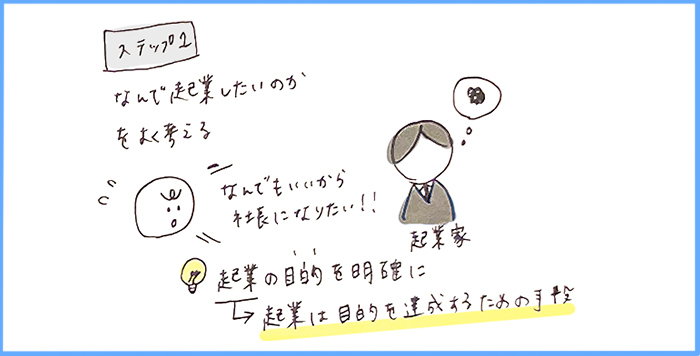 ステップ1
なんで起業したいのか
をよく考える
なんでもいいから
社長になりたい!!
起業家
起業の目的を明確に
↳起業は目的を達成するための手段